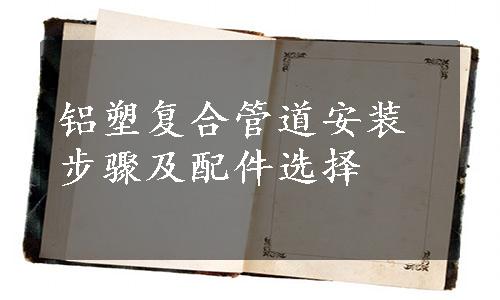 铝塑复合管道安装
步骤及配件选择